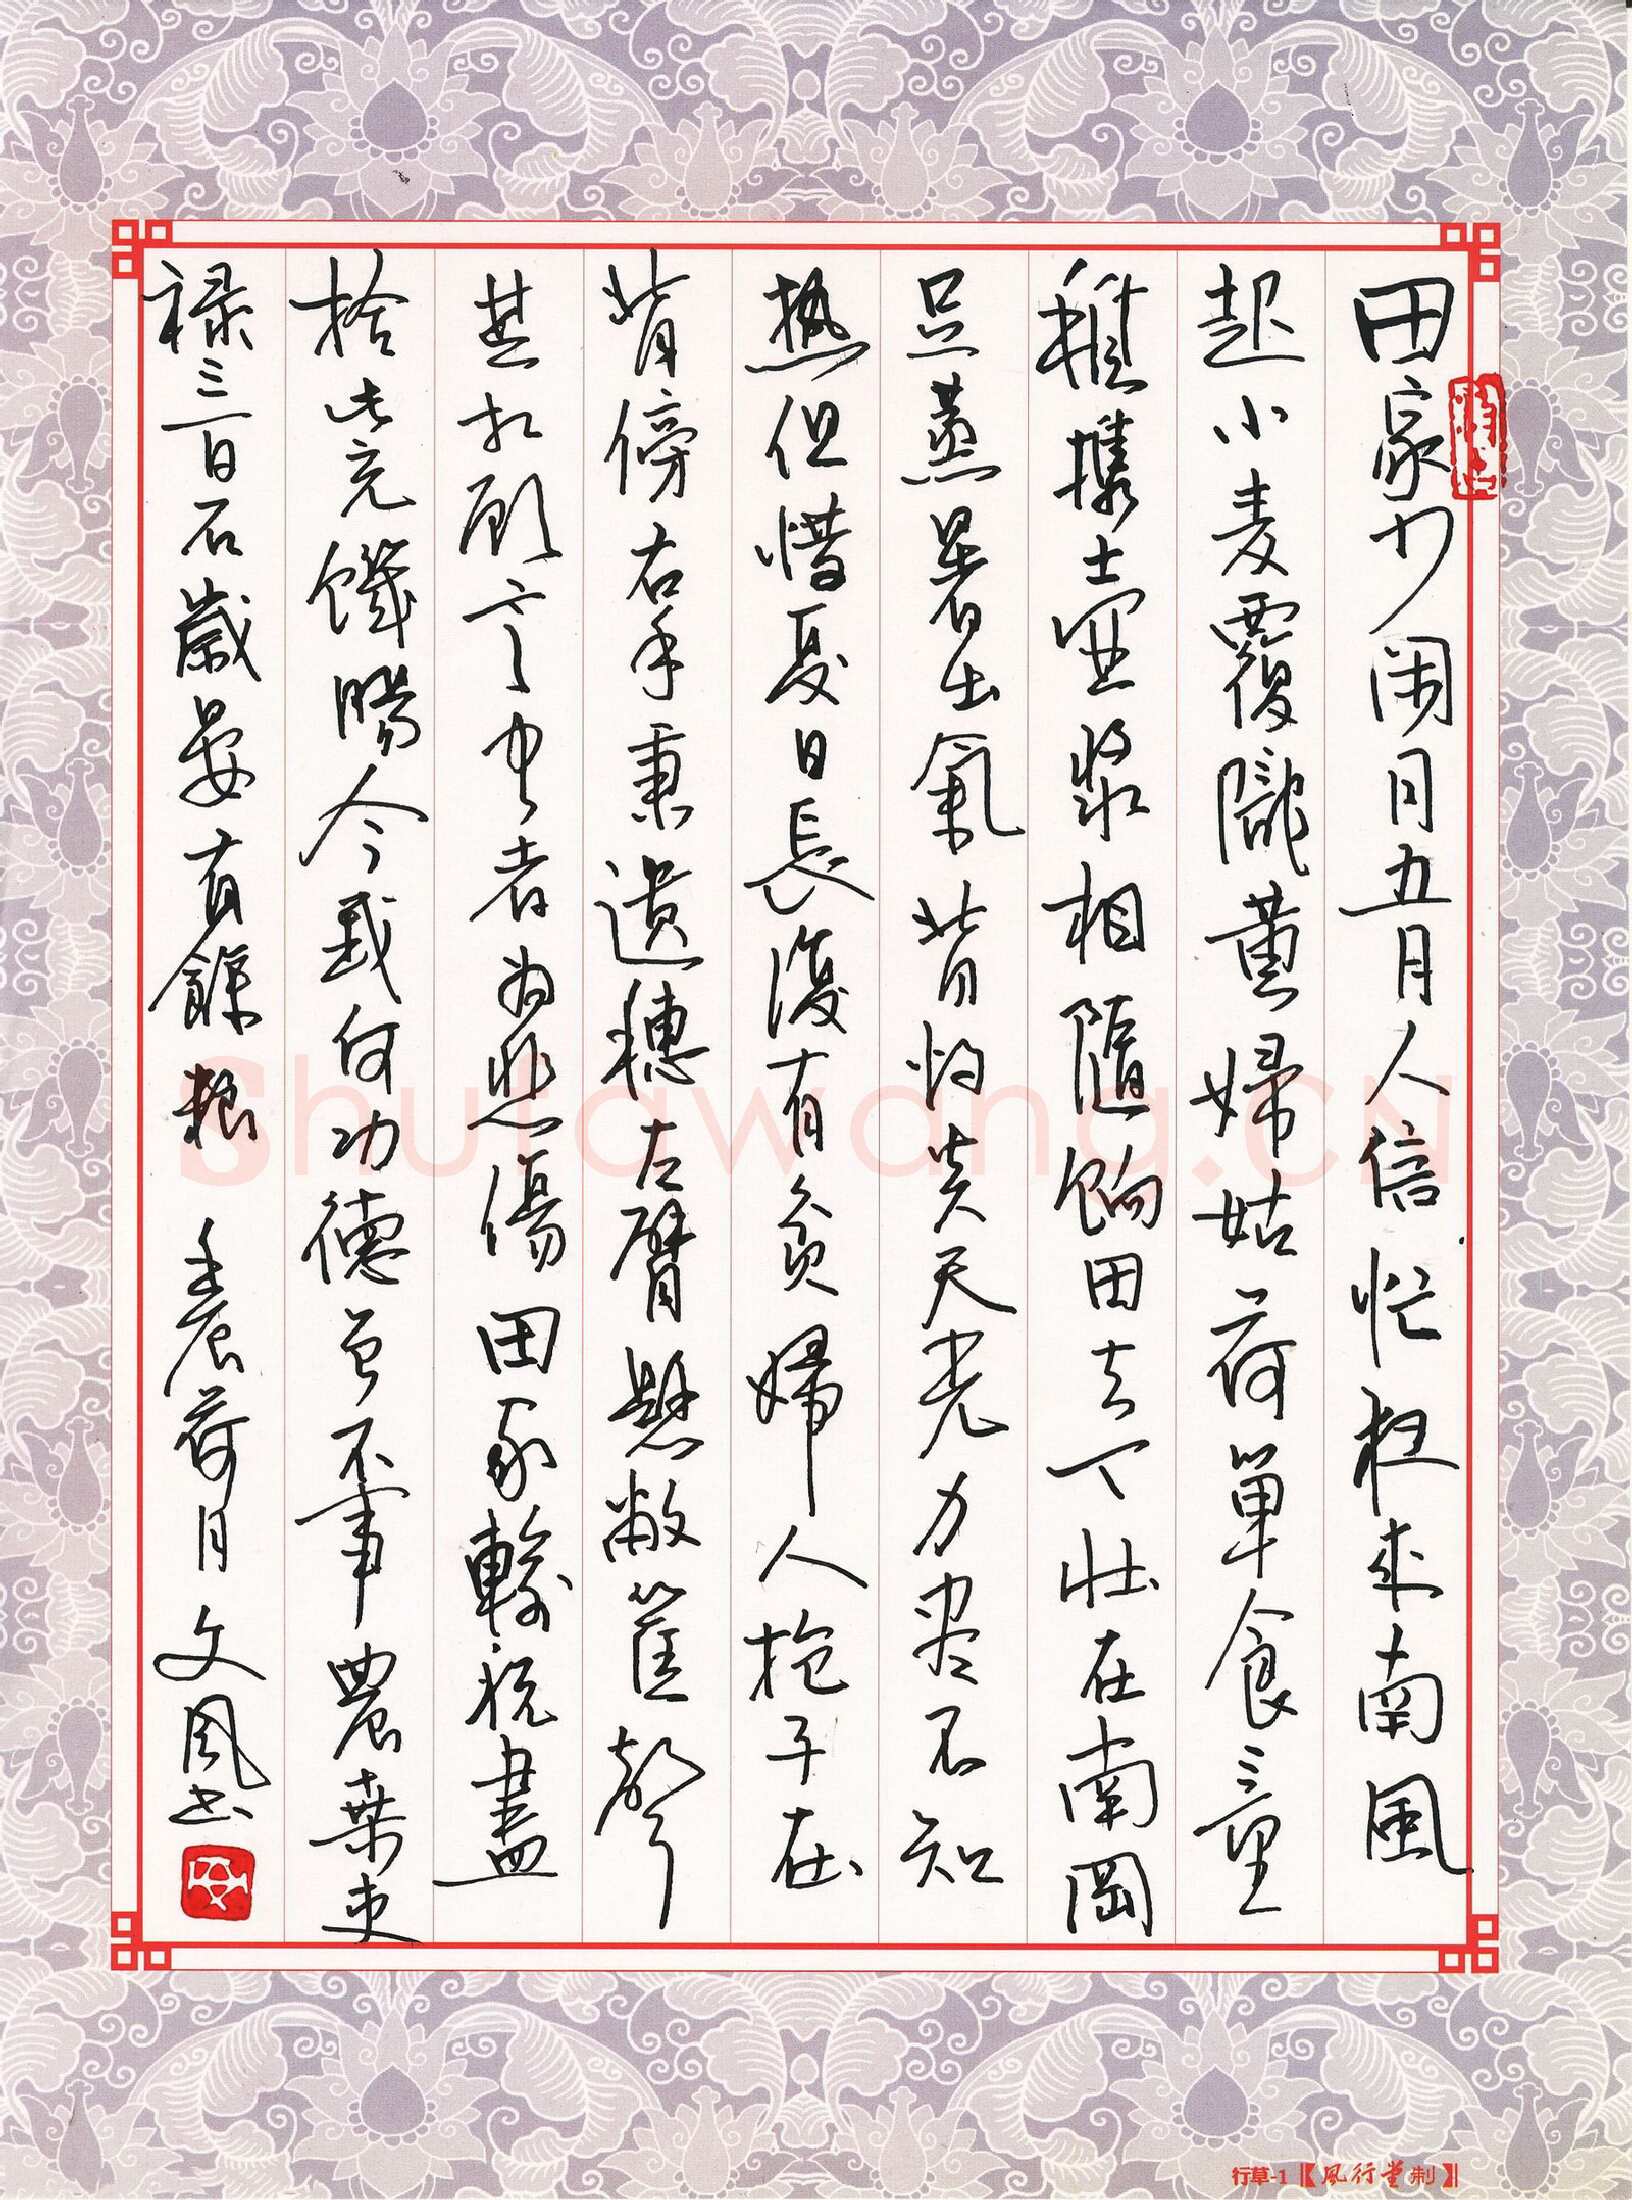 田家少闲月五月人倍忙枉来南風
起小麦覆隴黄婦姑荷箪食童
稚携壺漿相隨餉田去丁壯在南岡
足蒸暑土氣背灼炎天光力尽不知
熱但惜夏日長復有貧婦人抱子在
背傍右手秉遺穗左臂懸敝筐聽
其相顧言聞者為悲傷田家輸税盡
拾此充饑腸今我何功德曾不事農桑吏
禄三百石歲晏有餘粮 壬辰荷月 文風书
Shufawang.CN
行草-1【風行堂制】